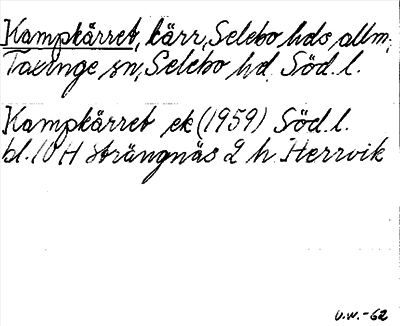 Kampkärret, kärr, Selebo hds allm.,
Taxinge sn, Selebo hd. Söd. l.
Kampkärret ek (1959) Söd. l.
bl. 10 H Strängnäs 2 h Herrvik
U.W.-62